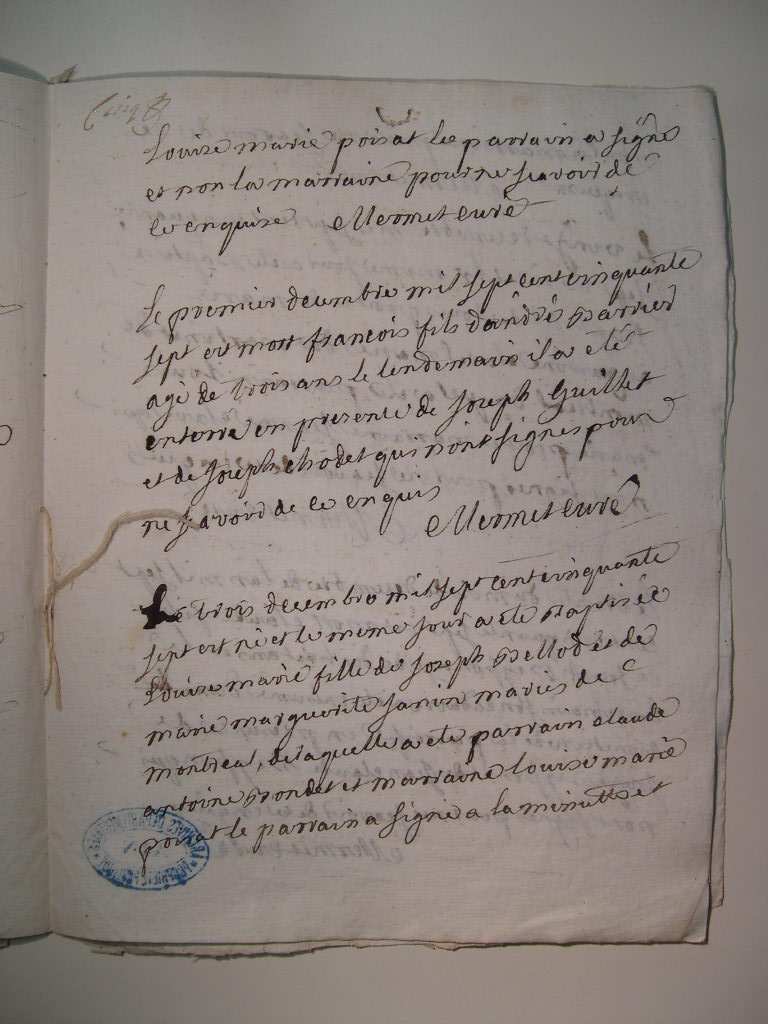 Cinq
Louise marie poisat le parrain a signe
et non la marraine pour ne scavoir de
ce enquise Mermet curé
Le premier decembre mil sept cent cinquante
sept est mort francois fils d'andré
agé de trois ans le lendemain il a eté
enterré en presence de Joseph Guillet
et de Joseph chodet qui n'ont signes pour
ne scavoir de ce enquis
Mermet curé
Le trois decembre mil sept cent cinquante
sept est né et le meme jour a ete baptisée
Louise marie fille de Joseph Bellod et de
marie marguerite Janin mariés de
montreal, de laquelle a ete parrain claude
antoine Bondet et marraine louise marie
poisat le parrain a signé a la minutte et